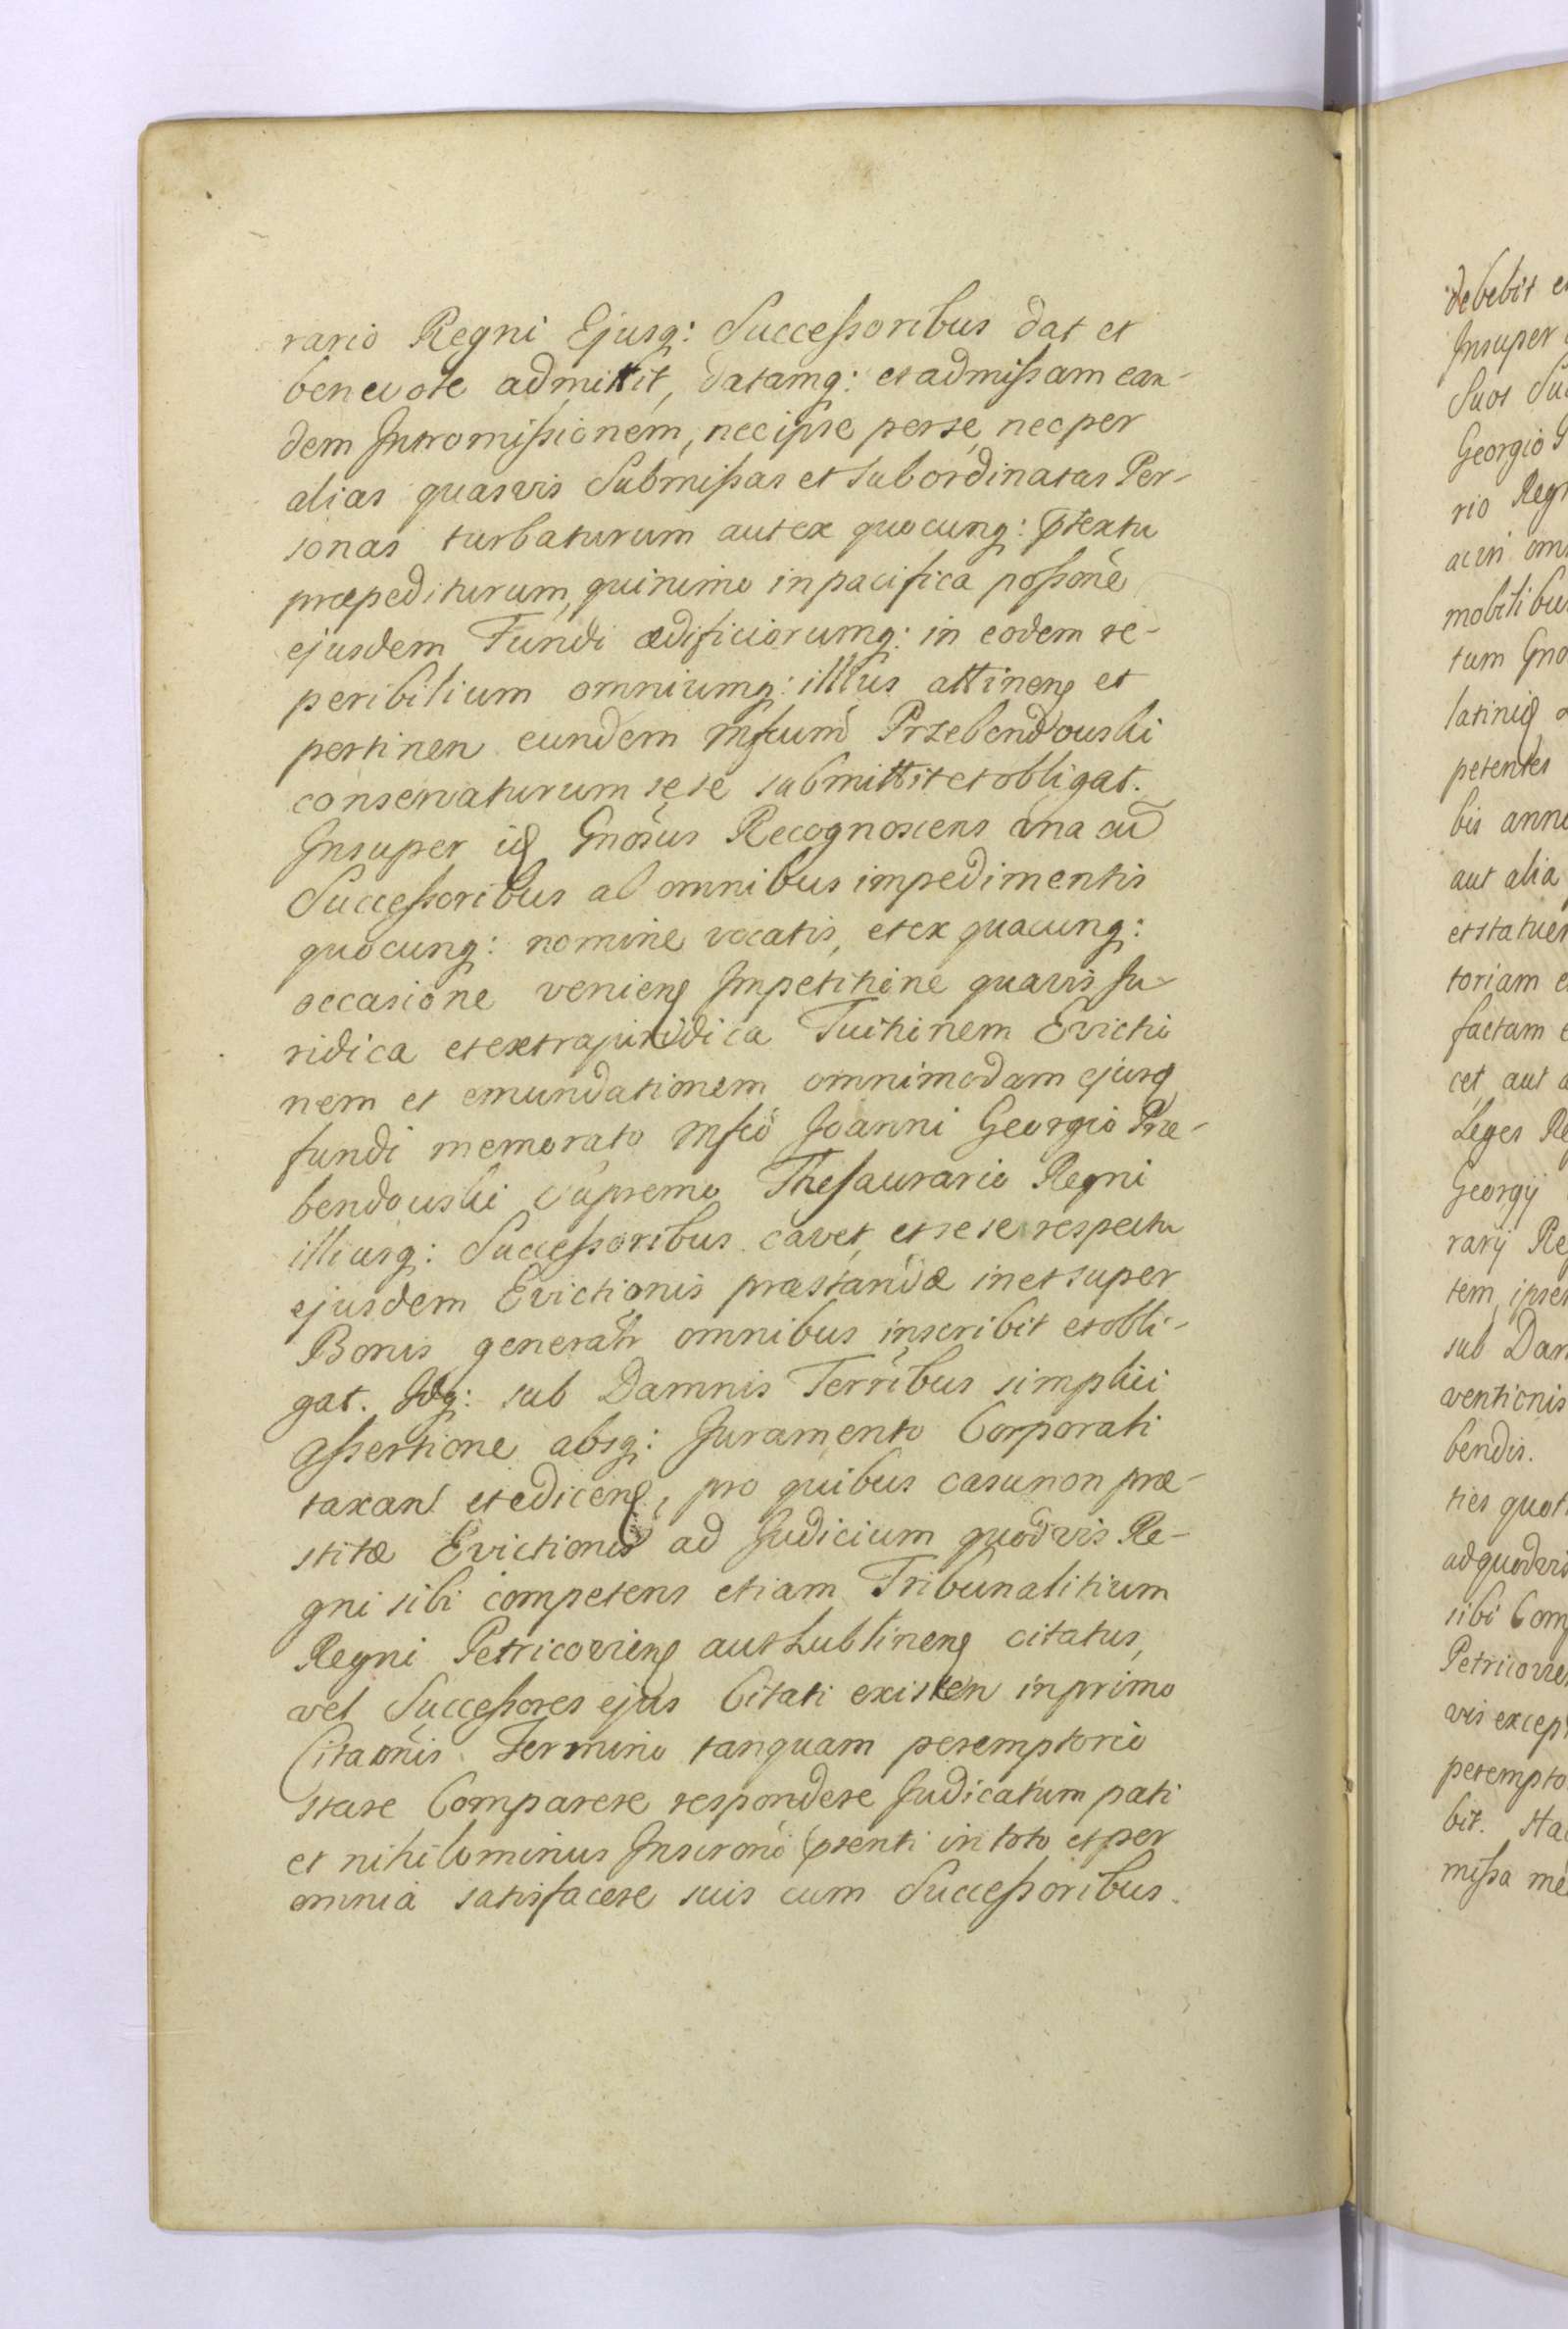 rario Regni Ejusq: Successoribus dat et
benevole admittit, datamq: et admissam ean-
dem Intromissionem, nec ipse per se, nec per
alias quasvis Submissas et subordinatas Per-
sonas turbaturum aut ex quocunq: ptextu
præpediturum, quinimo in pacifica possone
ejusdem Fundi ædificiorumq: in eodem re-
peribilium omniumq: illius attinen et
pertinen eundem Mfcum Przebendouski
conservaturum sese submittit et obligat.
Insuper id Gnosus Recognoscens una cu
Successoribus ab omnibus impedimentis
quocunq: nomine vocatis, et ex quacunq:
occasione venien Impetitine quavis Ju-
ridica et extrajuridica Tuitinem Evictio
nem et emundationem omnimodam ejusd
fundi memorato Mfco Joanni Georgio Prze-
bendouski Supremo Thesaurario Regni
illiusq: Successoribus cavet, et sese respectu
ejusdem Evictionis præstandæ in et super
Bonis generatr omnibus inscribit et obli-
gat. Idq: sub Damnis Terribus simplici
Assertione absq: Juramento Corporali
taxan et edicen, pro quibus casu non præ-
stitæ Evictionis ad Judicium quodvis Re-
gni sibi competens etiam Tribunalitium
Regni Petricovien aut Lublinen citatus,
vel Successores ejus Citati existen in primo
Citaonis Termino tanquam peremptorio
stare Comparere respondere Judicatum pati
et nihilominus Inscroni psenti in toto et per
omnia satisfacere suis cum Successoribus.
debebit
Insuper
Suos
Georgio
rio
mobilibu
petentes
aut alia
factam
cet, aut
Leges
Georgij
rarij
sub
ventionis
bendis.
ties
ad quodvis
sibi
vis
bit.
missa